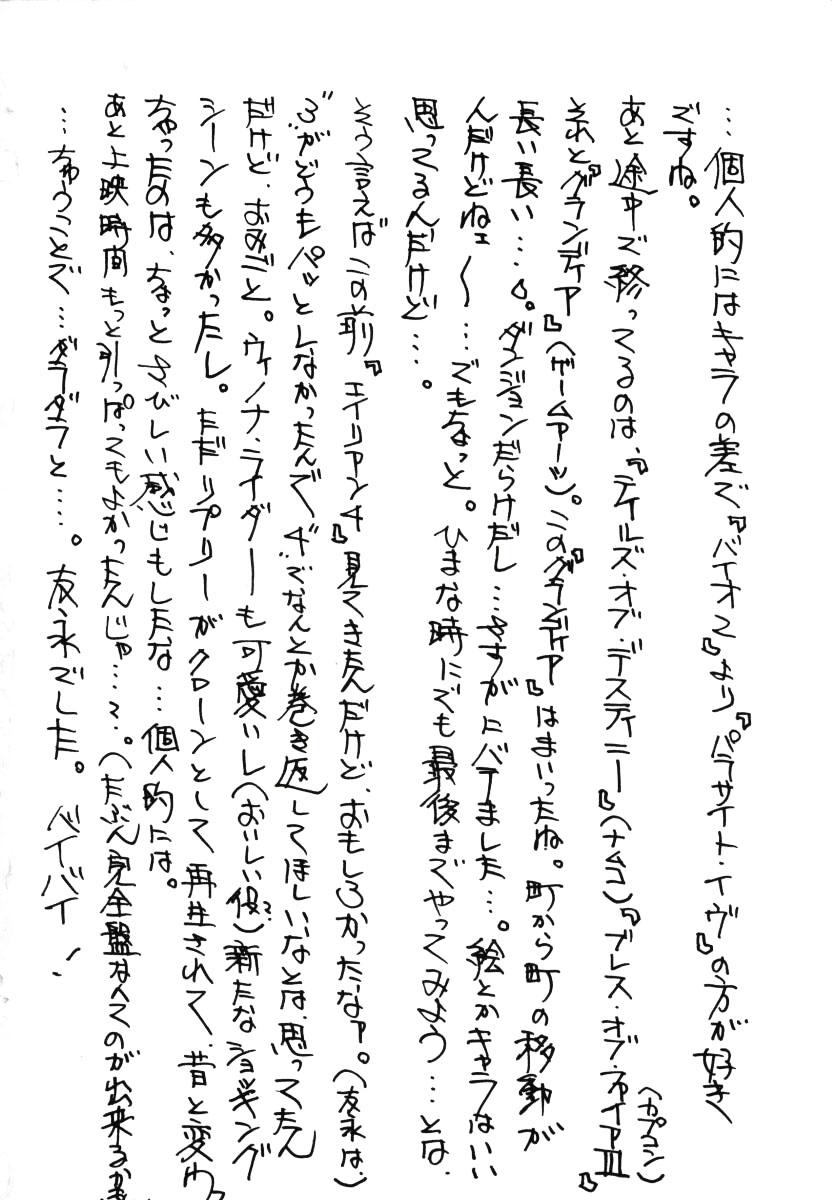 …個人的にはキャラの差で『バイオ2』より『パラサイト・イヴ』の方が好き
ですね。
あと途中で終ってるのは、『テイルズ・オブ・デスティニー』(ナムコ)『ブレス・オブ・ファイアⅢ』(カプコン)
それと『グランディア』(ゲームアーツ)。この『グランディア』はまいったね。町から町の移動が
長い長い…。ダンジョンだらけだし…さすがにバテました…。絵とかキャラはいい
んだけどねェ〜…でもちょっと。ひまな時にでも最後までやってみよう…とは、
思ってるんだけど…。
そう言えばこの前『エイリアン4』見てきたんだけど、おもしろかったなァ。(友永は、)
“3”がどうもパッとしなかったんで、“4”でなんとか巻き返してほしいなとは、思ってたん
だけど、おみごと。ウィノナ・ライダーも可愛いし(おいしい役?)新たなショッキング
シーンも多かったし。ただリプリーがクローンとして再生されて、昔と変わっ
ちゃったのは、ちょっとさびしい感じもしたな…個人的には。
あと上映時間もっと引っぱってもよかったんじゃ…?。(たぶん完全盤なんてのが出来るか
…ちゅうことで…ダラダラと…。友永でした。バイバイ!